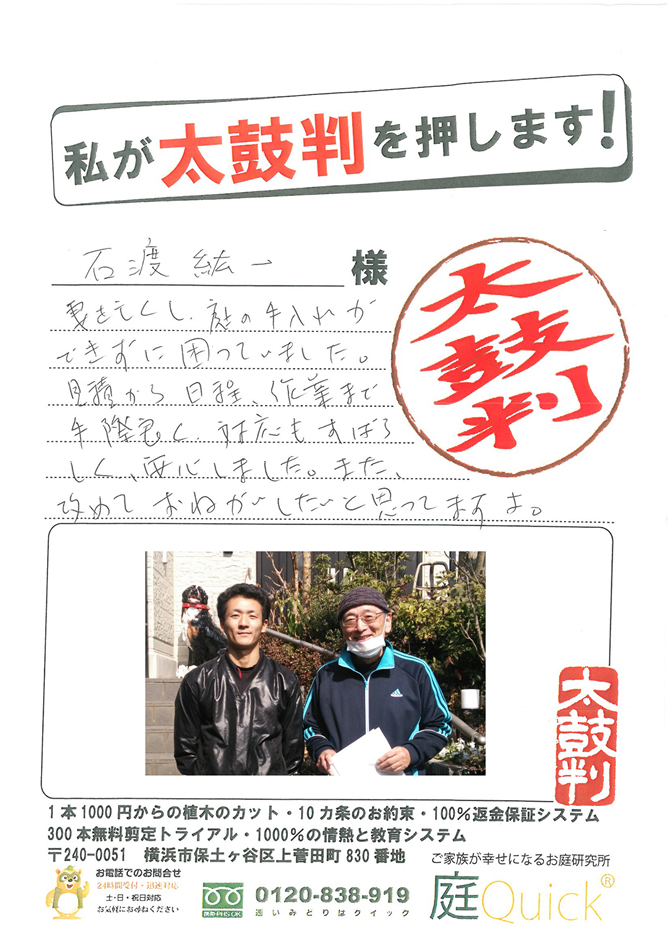 私が太鼓判を押します!
石渡 紘一 様
太鼓判
妻を亡くし、庭の手入れが
できずに困っていました。
見積から日程、作業まで
手際良く、対応もすばら
しく、安心しました。また、
改めておねがいしたいと思ってますよ。
太鼓判
1本1000円からの植木のカット・10カ条のお約束・100%返金保証システム
300本無料剪定トライアル・1000%の情熱と教育システム
〒240-0051 横浜市保土ヶ谷区上菅田町830番地
ご家族が幸せになるお庭研究所
お電話でのお問合せ
24時間受付・迅速対応
土・日・祝日対応
お気軽にお尋ねください
携帯・PHS OK
0120-838-919
速いみどりはクイック
庭Quick®